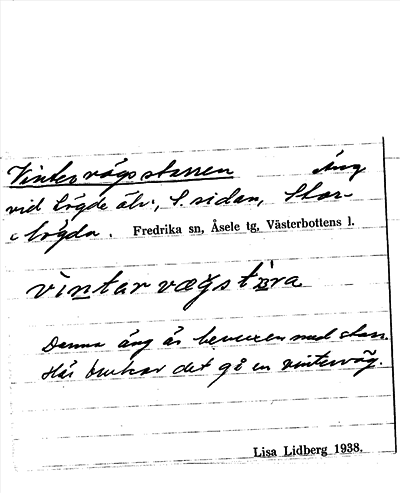 Vintervägsstarren Äng
vid Lögde älv, S. sidan, Stor-
Lögda. Fredrika sn, Åsele tg, Västerbottens l.
vintarvægst
Denna äng är beväxen med starr.
Här brukar det gå en vinterväg.
Lisa Lidberg 1938.